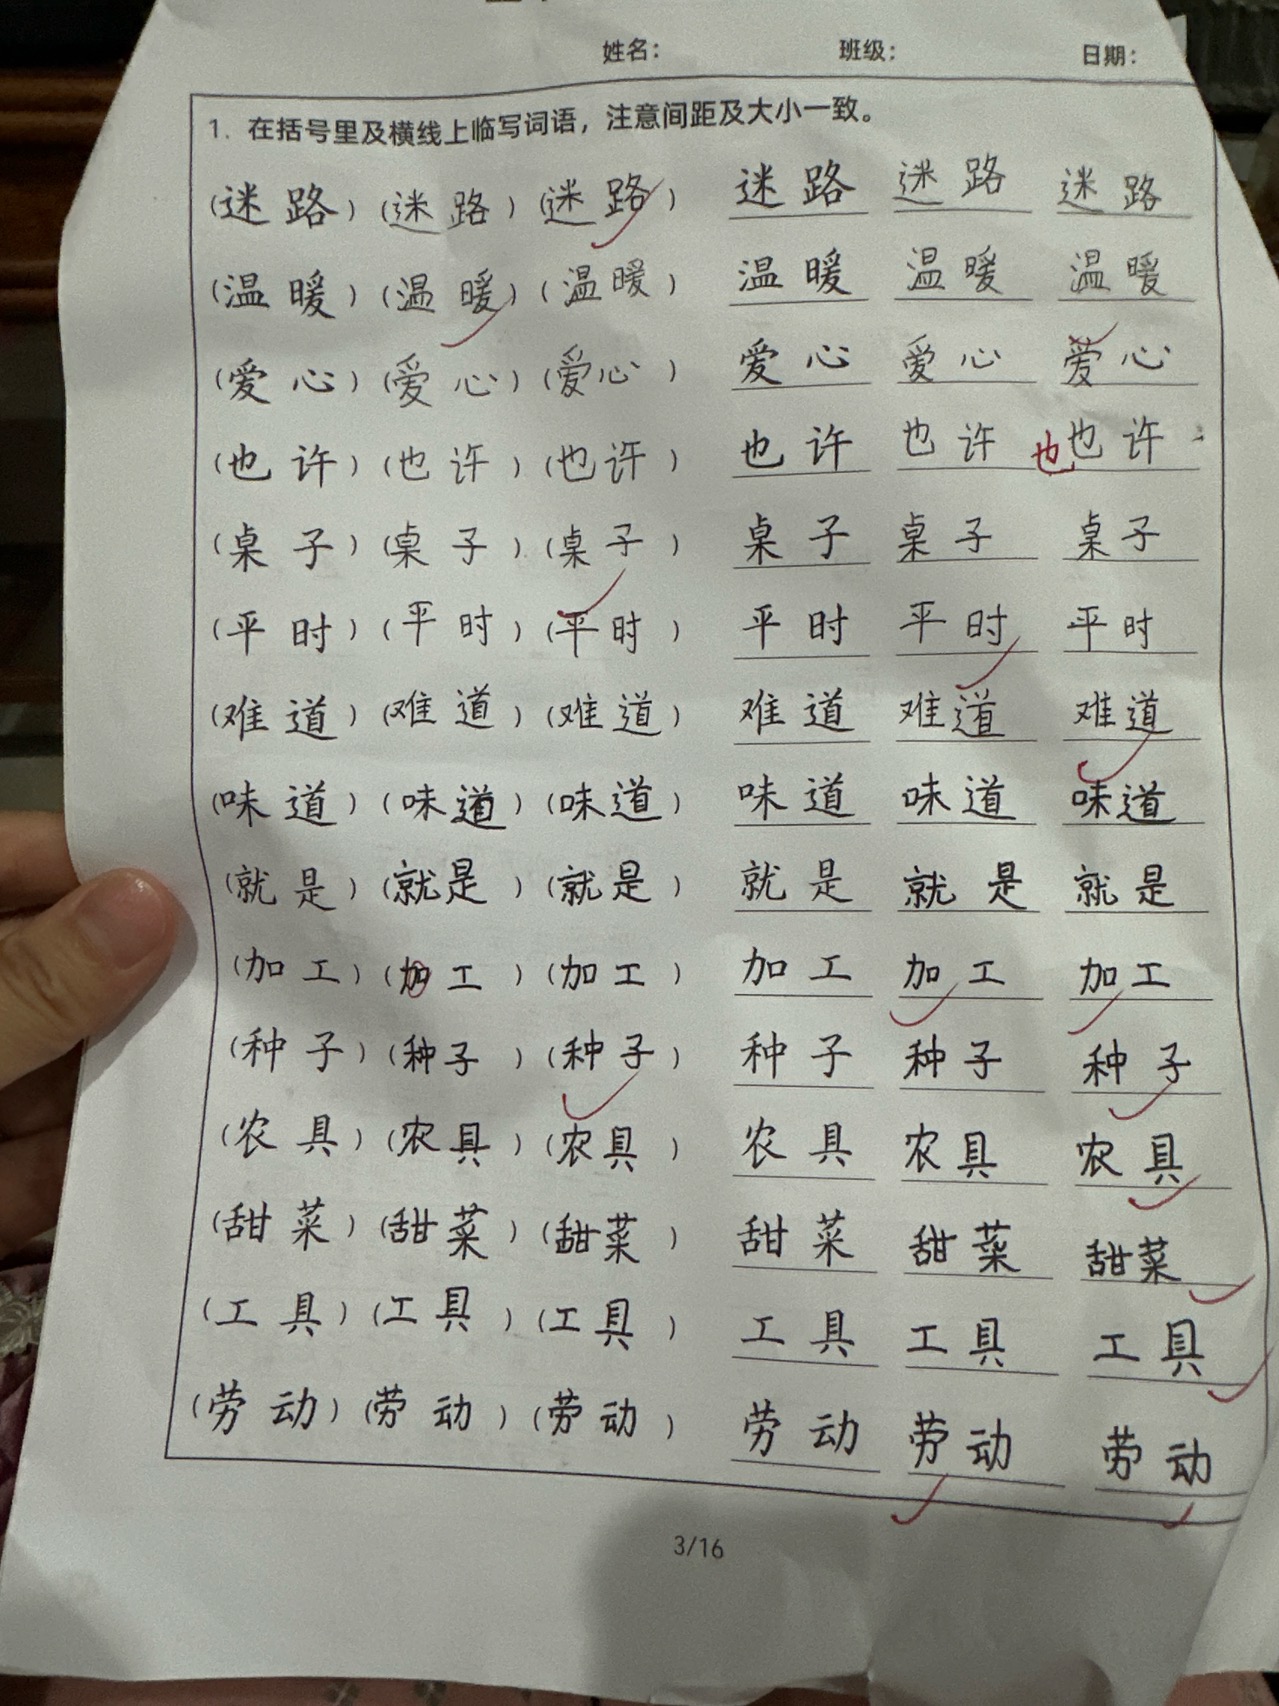 姓名： 班级： 日期：
1. 在括号里及横线上临写词语，注意间距及大小一致。
(迷路) (迷路) (迷路) 迷路 迷路 迷路
(温暖) (温暖) (温暖) 温暖 温暖 温暖
(爱心) (爱心) (爱心) 爱心 爱心 爱心
(也许) (也许) (也许) 也许 也许 也 也许
(桌子) (桌子) (桌子) 桌子 桌子 桌子
(平时) (平时) (平时) 平时 平时 平时
(难道) (难道) (难道) 难道 难道 难道
(味道) (味道) (味道) 味道 味道 味道
(就是) (就是) (就是) 就是 就是 就是
(加工) (加工) (加工) 加工 加工 加工
(种子) (种子) (种子) 种子 种子 种子
(农具) (农具) (农具) 农具 农具 农具
(甜菜) (甜菜) (甜菜) 甜菜 甜菜 甜菜
(工具) (工具) (工具) 工具 工具 工具
(劳动) (劳动) (劳动) 劳动 劳动 劳动
3/16